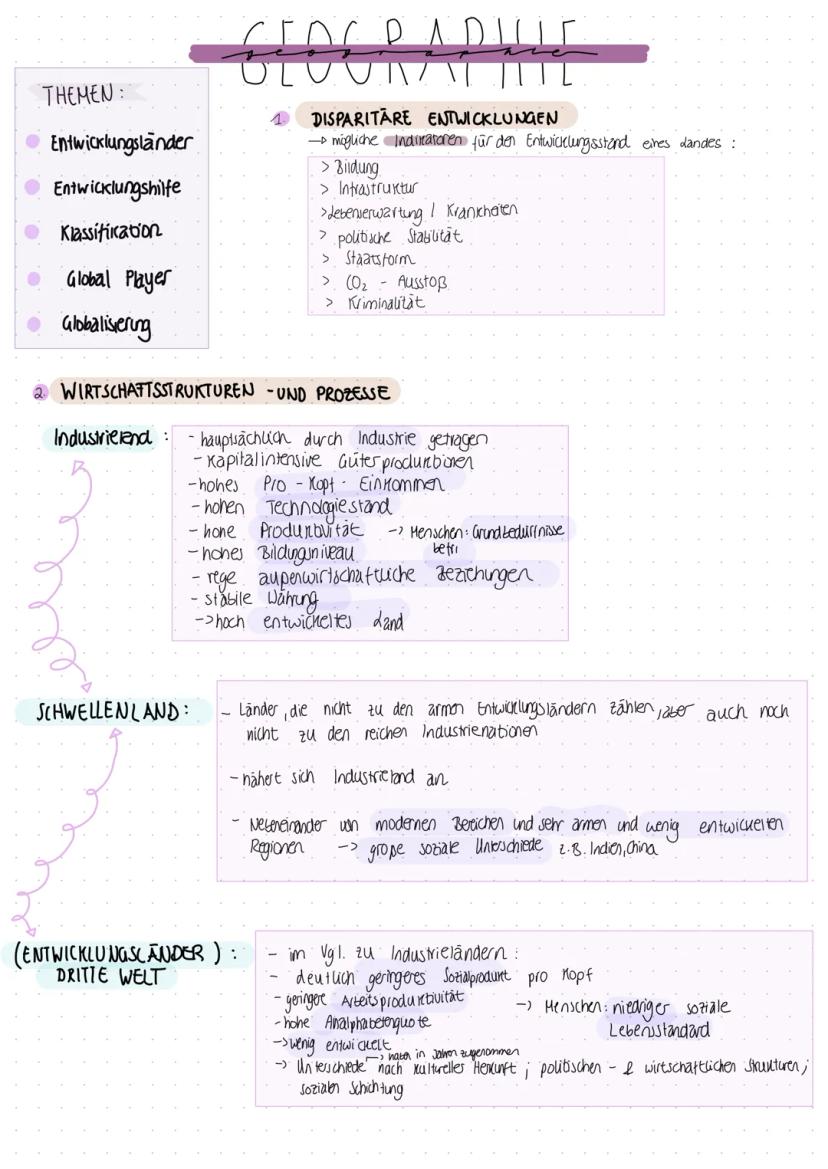 GEOGRAPHIE
geographie
THEMEN:
Entwicklungsländer
Entwicklungshilfe
Klassifikation
Global Player
Globalisierung
1. DISPARITÄRE ENTWICKLUNGEN
-> mögliche Indikatoren für den Entwicklungsstand eines Landes :
> Bildung
> Infrastruktur
> Lebenserwartung / Krankheiten
> politische Stabilität
> Staatsform
> CO₂ - Ausstoß
> Kriminalität
2. WIRTSCHAFTSSTRUKTUREN - UND PROZESSE
Industrieland :
- hauptsächlich durch Industrie getragen
- Kapitalintensive Güterproduktionen
- hohes Pro - Kopf - Einkommen
- hohen Technologiestand
- hohe Produktivität -> Menschen: Grundbedürfnisse
- hohes Bildungsniveau befri
- rege außenwirtschaftliche Beziehungen
- stabile Währung
-> hoch entwickeltes Land
SCHWELLENLAND :
- Länder, die nicht zu den armen Entwicklungsländern zählen, aber auch noch
nicht zu den reichen Industrienationen
- nähert sich Industrieland an
- Nebeneinander von modernen Bereichen und sehr armen und wenig entwickelten
Regionen -> große soziale Unterschiede z.B. Indien, China
(ENTWICKLUNGSLÄNDER) :
DRITTE WELT
- im Vgl. zu Industrieländern :
- deutlich geringeres Sozialprodukt pro Kopf
- geringere Arbeitsproduktivität
-> Menschen: niedriger soziale
- hohe Analphabetenquote
Lebensstandard
-> wenig entwickelt
-> haben in Jahren zugenommen
-> Unterschiede nach kultureller Herkunft ; politischen - & wirtschaftlichen Strukturen ;
sozialen Schichtung